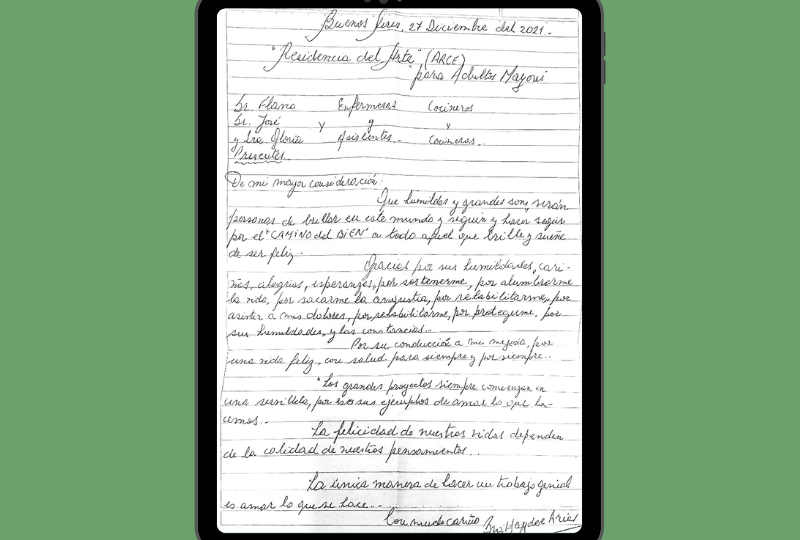 Buenos Aires, 27 Diciembre del 2021.-
"Residencia del Arte" (ARCE)
para Adultos Mayores
Sr. Flavio Enfermeras Cocineros
Sr. José y y y
y Sra Gloria Asistentes.- Cocineras.
Presentes.
De mi mayor consideración.
Que humildes y grandes son, serán
personas de brillar en este mundo y seguir y hacer seguir
por el "CAMINO del BIEN" a todo aquel que brille y sueñe
de ser feliz.
Gracias por sus humildades, cari-
ños, alegrías, esperanzas, por sostenerme, por alumbrarme
la vida, por sacarme la angustia, por rehabilitarme, por
asistir a mis dolores, por rehabilitarme, por protegerme, por
sus humildades, y las constancias.-
Por su conducción a mi mejoría, por
una vida feliz, con salud para siempre y por siempre..
"Los grandes proyectos siempre comienzan en
una servilleta, por eso sus ejemplos de amar lo que ha-
cemos.-
La felicidad de nuestras vidas dependen
de la calidad de nuestros pensamientos..
La única manera de hacer un trabajo genial
es amar lo que se hace...
Con mucho cariño Haydee Arias